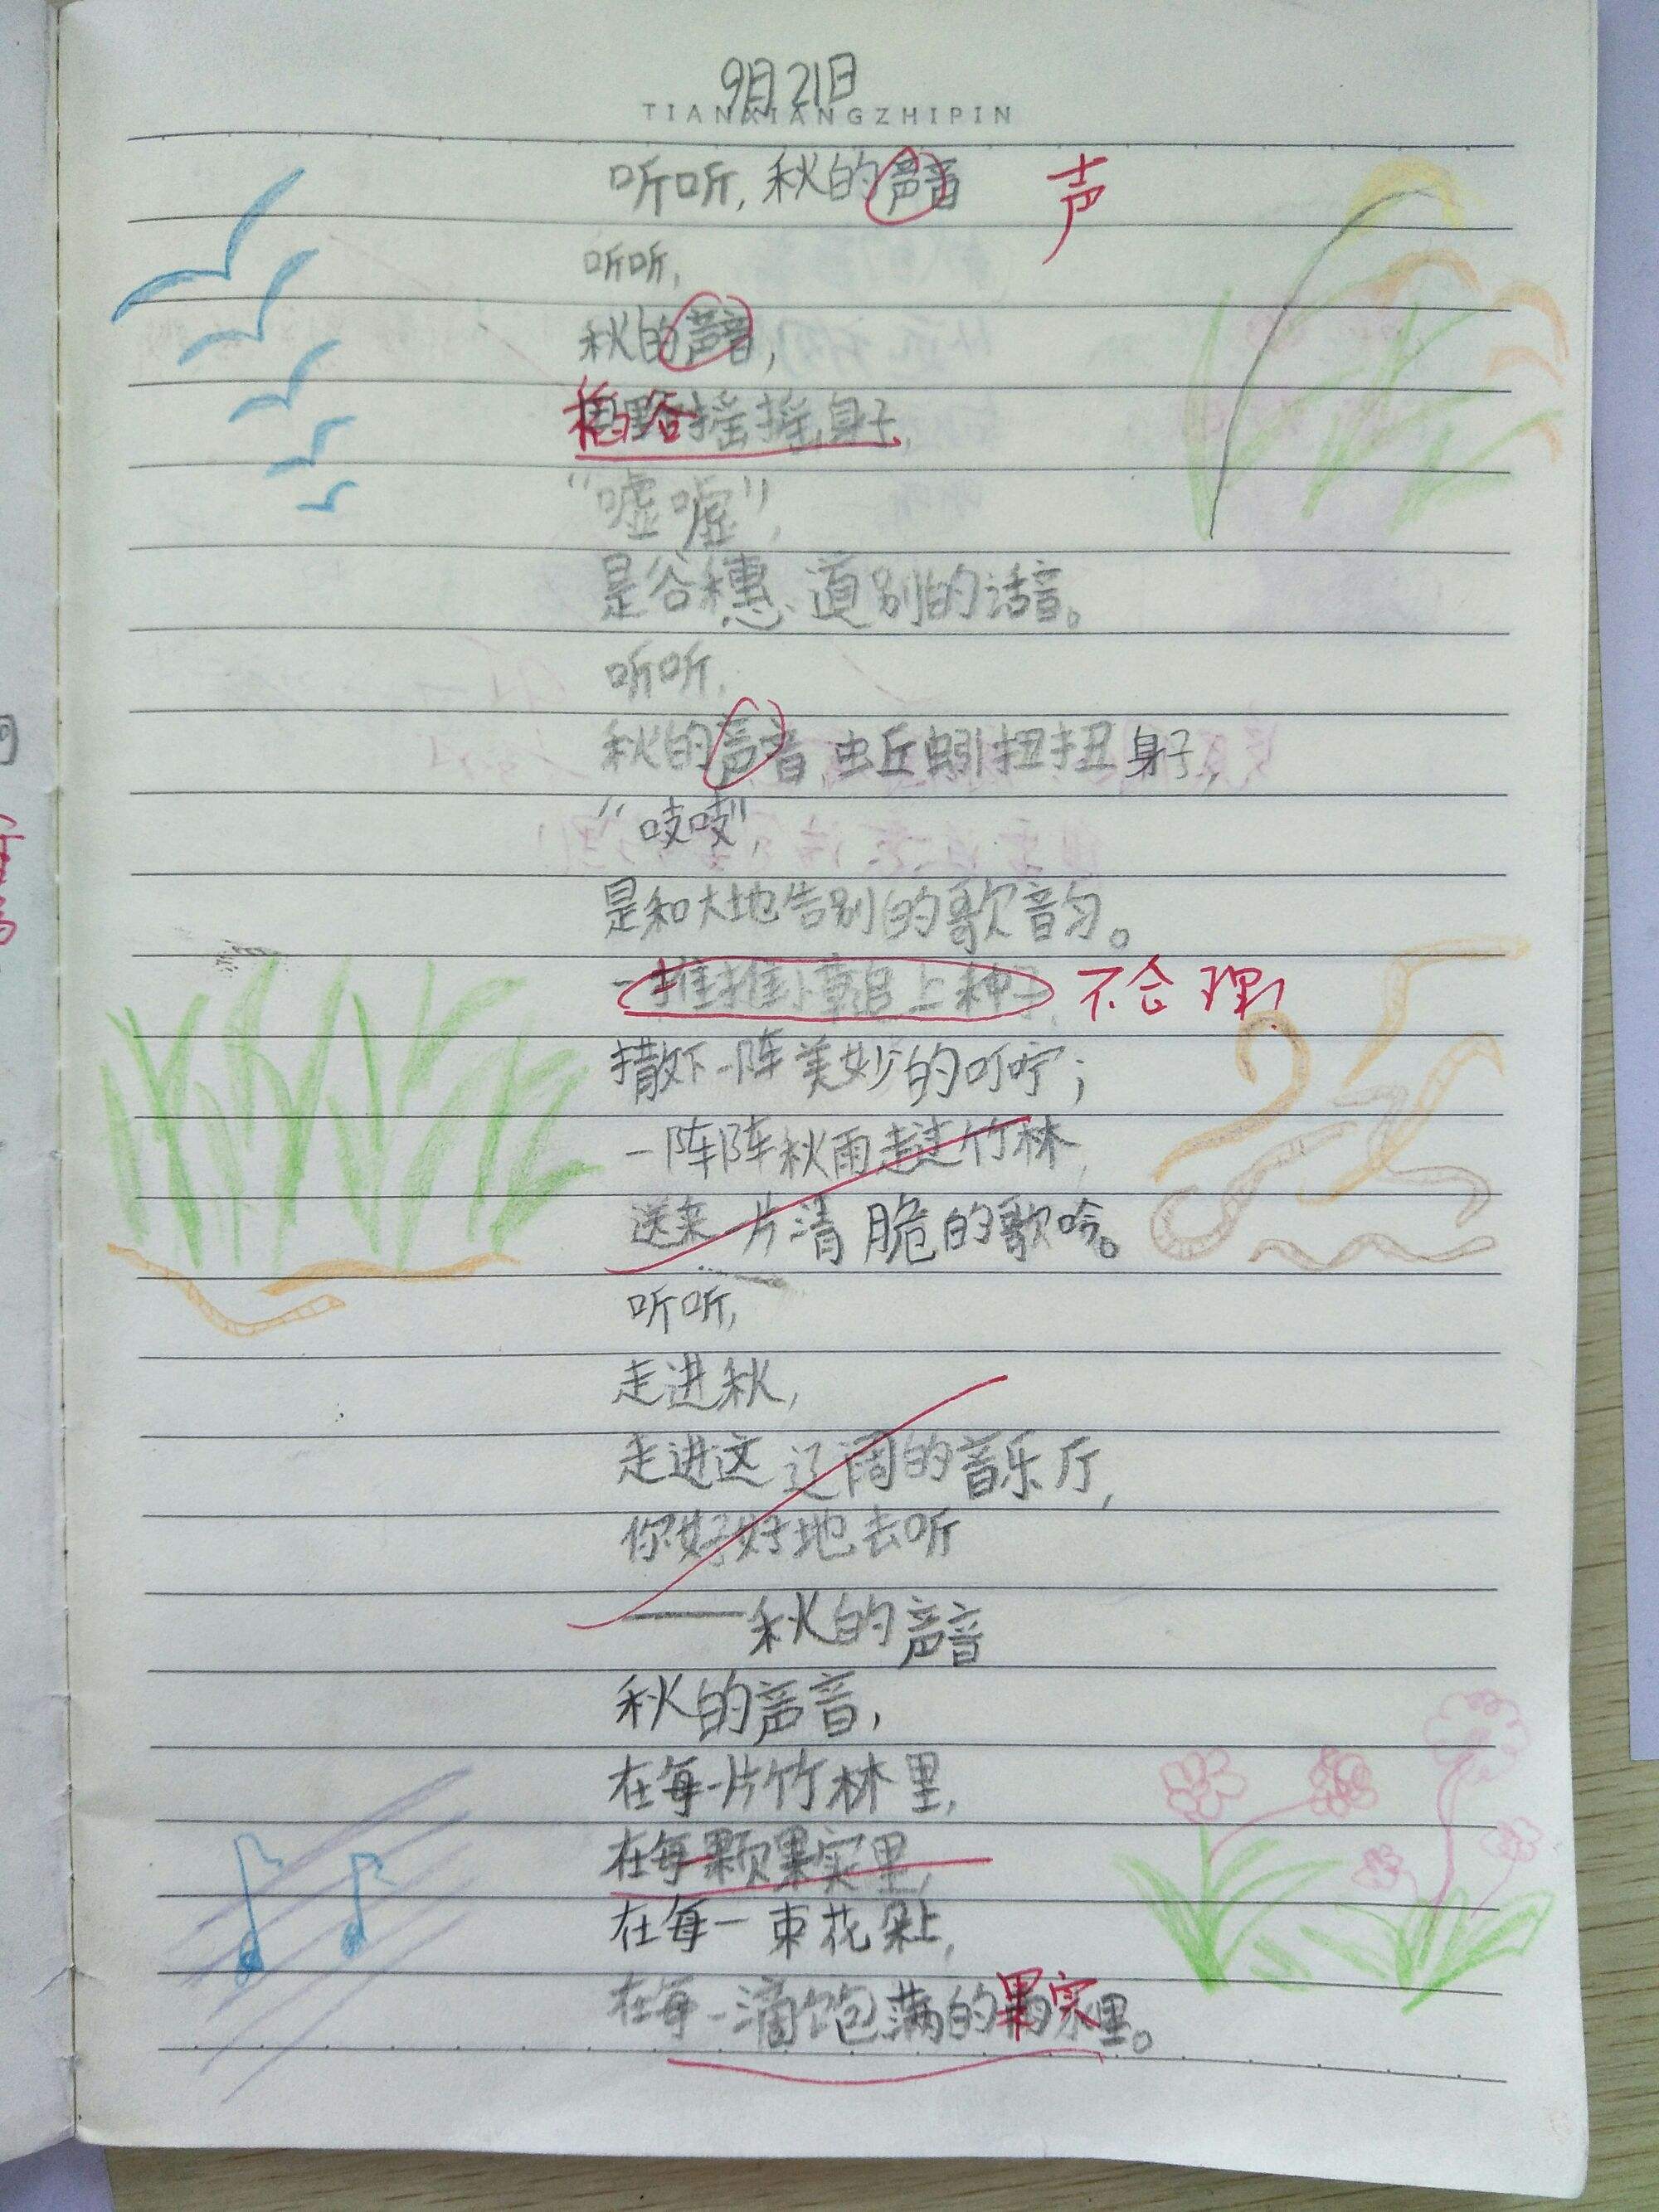 9月21日
TIANXIANGZHIPIN
听听,秋的声音 声
听听,
秋的声音,
稻谷摇摇身子,
“嘘嘘”,
是谷穗道别的话音。
听听,
秋的声音,蚯蚓扭扭身子,
“吱吱”,
是和大地告别的歌韵。
一推推小草追上种子, 不合理
撒下一阵美妙的叮咛;
一阵阵秋雨走进竹林,
送来一片清脆的歌吟。
听听,
走进秋,
走进这辽阔的音乐厅,
你好好地去听
——秋的声音
秋的声音,
在每一片竹林里,
在每一颗果实里,
在每一束花朵上,
在每一滴饱满的果实里。